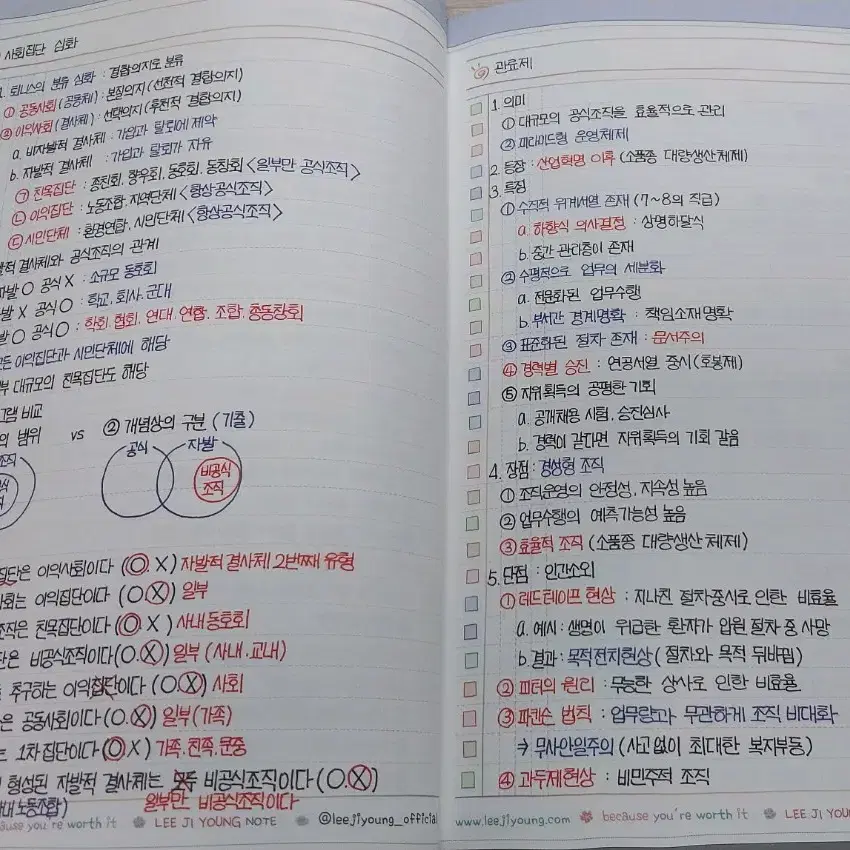 사회집단 심화
1. 퇴니스의 분류 심화 : 결합의지로 분류
① 공동사회(공동체) : 본질의지(선천적 결합의지)
② 이익사회(결사체) : 선택의지(후천적 결합의지)
a. 비자발적 결사체 : 가입과 탈퇴에 제약
b. 자발적 결사체 : 가입과 탈퇴가 자유
㉠ 친목집단 : 종친회, 향우회, 동호회, 동창회 <일부만 공식조직>
㉡ 이익집단 : 노동조합, 지역단체 <항상공식조직>
㉢ 시민단체 : 환경연합, 시민단체 <항상공식조직>
결사체와 공식조직의 관계
공식 X : 소규모 동호회
X 공식 O : 학교, 회사, 군대
O 공식 O : 학회, 협회, 연대, 연합, 조합, 총동창회
이익집단과 시민단체에 해당
대규모의 친목집단도 해당
비교
범위 vs ② 개념상의 구분 (기출)
공식 자발
비공식
조직
은 이익사회이다 (O. X) 자발적 결사체 2번째 유형
는 이익집단이다 (O X) 일부
조직은 친목집단이다 (O X) 사내동호회
은 비공식조직이다 (O.X) 일부 (사내, 교내)
추구하는 이익집단이다 (O.X) 사회
은 공동사회이다 (O.X) 일부(가족)
는 1차집단이다 (O X) 가족, 친족, 문중
형성된 자발적 결사체는 비공식조직이다 (O.X)
노동조합) 일부만 비공식조직이다
you're worth it LEE JI YOUNG NOTE @leejiyoung_official
관료제
1. 의미
① 대규모의 공식조직을 효율적으로 관리
② 피라미드형 운영체제
2. 등장 : 산업혁명 이후 (소품종 대량생산체제)
3. 특징
① 수직적 위계서열 존재 (7~8의 직급)
a. 하향식 의사결정 : 상명하달식
b. 중간 관리층이 존재
② 수평적으로 업무의 세분화
a. 전문화된 업무수행
b. 부서간 경계명확 : 책임소재명확
③ 표준화된 절차 존재 : 문서주의
④ 경력별 승진 : 연공서열 중시(호봉제)
⑤ 지위획득의 공평한 기회
a. 공개채용 시험, 승진심사
b. 경력이 같다면 지위획득의 기회 같음
4. 장점 : 경성형 조직
① 조직운영의 안정성, 지속성 높음
② 업무수행의 예측가능성 높음
③ 효율적 조직 (소품종 대량생산 체제)
5. 단점 : 인간소외
① 레드테이프 현상 : 지나친 절차중시로 인한 비효율
a. 예시 : 생명이 위급한 환자가 입원 절차 중 사망
b. 결과 : 목적전치현상 (절차와 목적 뒤바뀜)
② 피터의 원리 : 무능한 상사로 인한 비효율
③ 파킨슨 법칙 : 업무량과 무관하게 조직 비대화
→ 무사안일주의 (사고없이 최대한 복지부동)
④ 과두제현상 : 비민주적 조직
www.leejiyoung.com because you're worth it LEE JI YOUNG